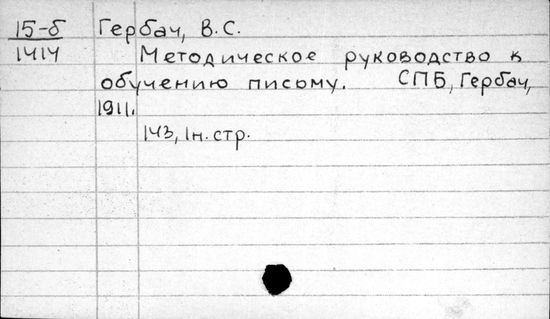 15-б Гербач, В.С.
1414 Методическое руководство к
обучению письму. СПБ, Гербач,
1911.
143, 1н. стр.